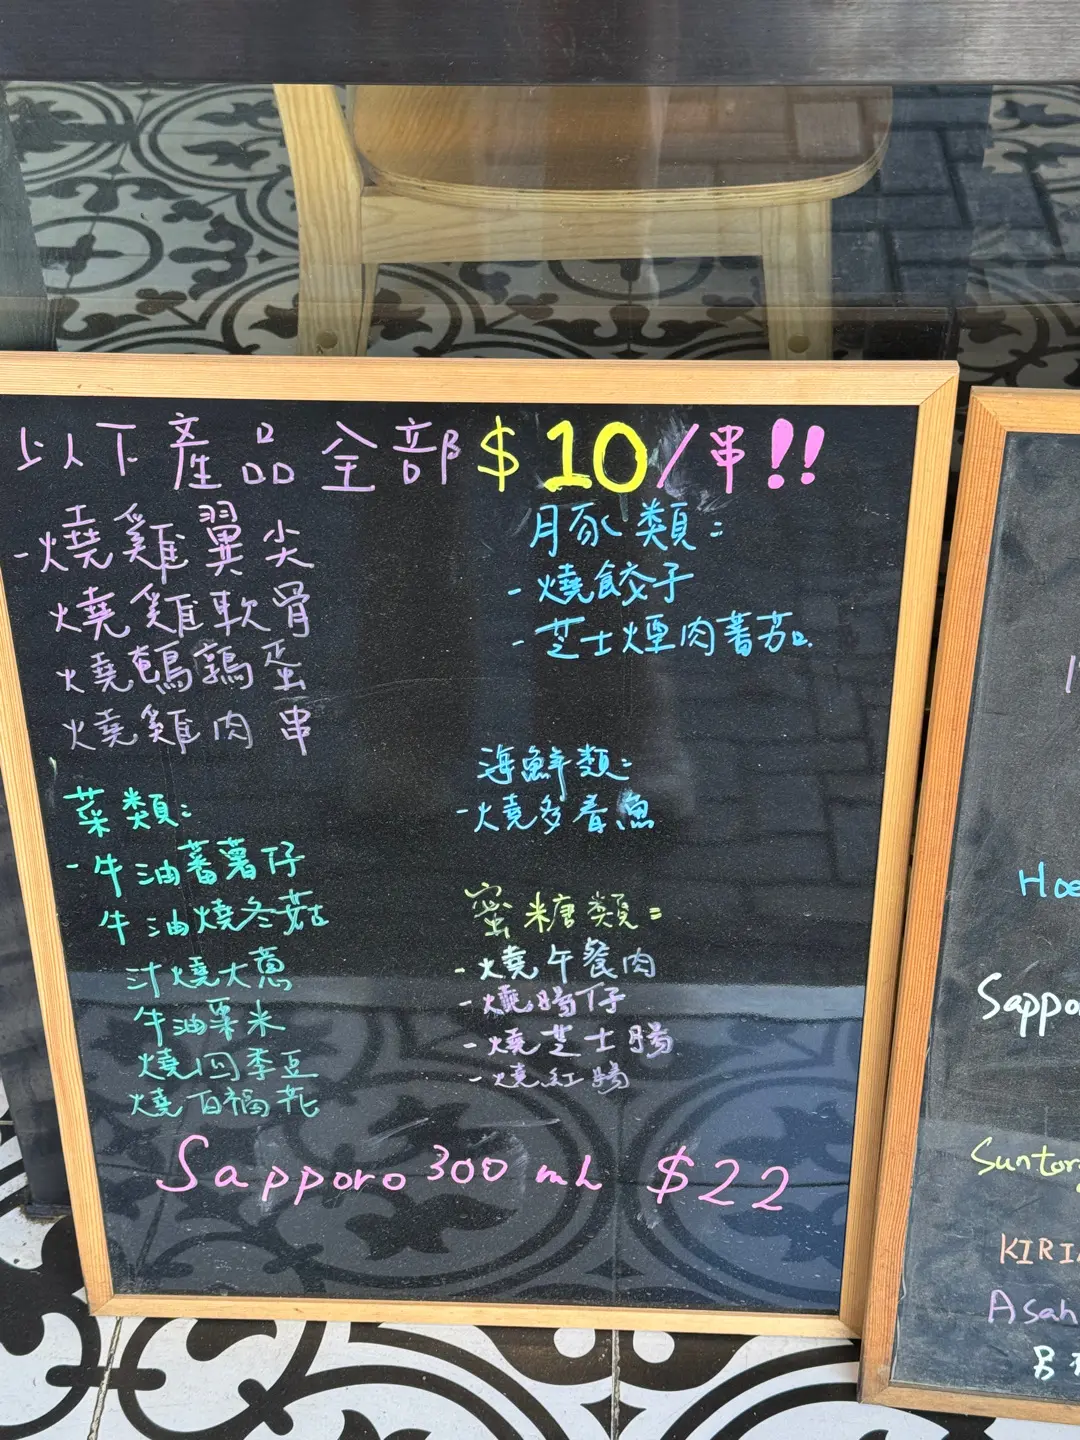 以下產品全部$10/串!!
-燒雞翼尖
燒雞軟骨
燒鵪鶉蛋
燒雞肉串
菜類:
-牛油蕃薯仔
牛油燒冬菇
汁燒大蔥
牛油粟米
燒四季豆
燒百福花
豚類:
-燒餃子
-芝士煙肉蕃茄
海鮮類:
-燒多春魚
蜜糖類:
-燒午餐肉
-燒腸仔
-燒芝士腸
-燒紅腸
Sapporo 300 mL $22
Hoe
Sappo
Suntor
KIRI
Asah